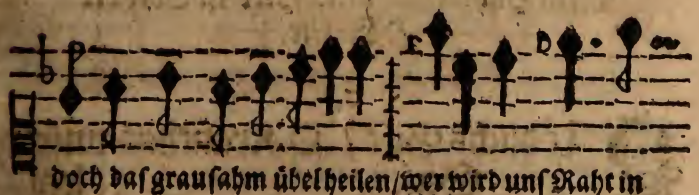 doch das grausahm übel heilen/wer wird uns Raht in